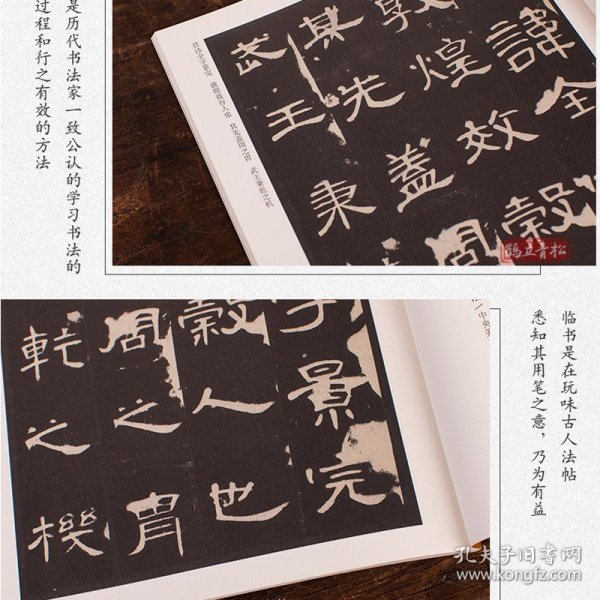 是历代书法家一致公认的学习书法的
过程和行之有效的方法
諱全
敦煌效穀
其先蓋周
武王秉
君讳全字景完 敦煌效谷人也 其先盖周之胄 武王秉乾之机
鹤立青松
中央美
字景完
穀人也
周之胄
乾之機
临书是在玩味古人法帖
悉知其用笔之意，乃为有益
孔夫子旧书网
www.kongfz.com